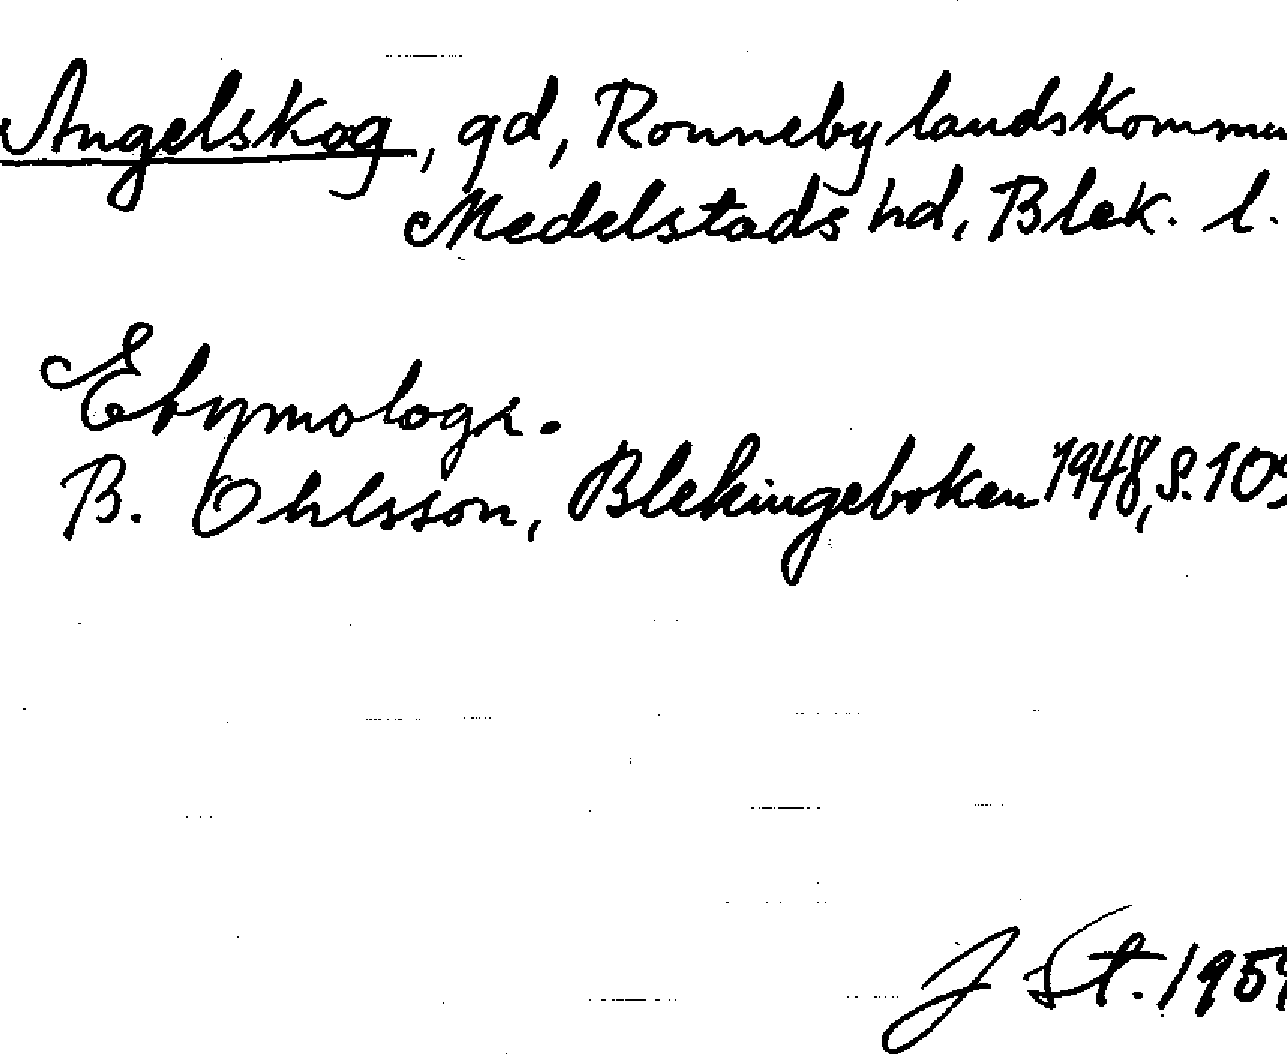 Angelskog, gd, Ronneby landskommu
Medelstads hd, Blek. l.
Etymologi.
B. Ohlsson, Blekingeboken 1948, s. 109
J St. 195